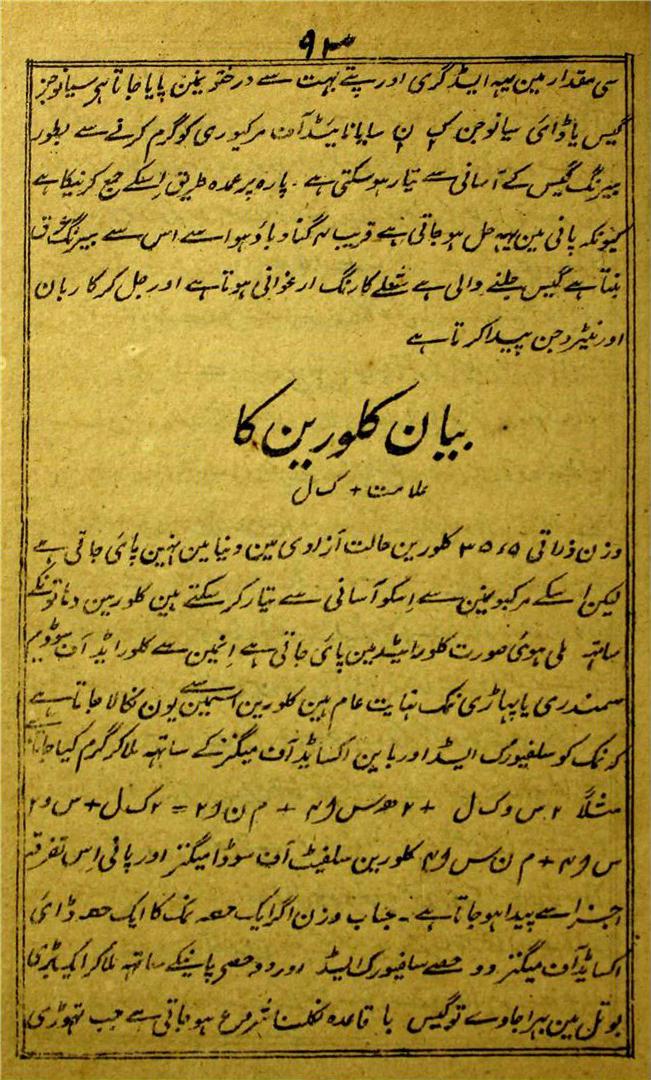 ۹۳
سی مقدار مین یہہ ایسڈ گری اور پتے بہت سے درختو نمین پایا جاتا ہی سیانوجن
گیس یا ڈائی سیانوجن ک ن سایانائیڈ آف مرکیوری کو گرم کرنے سے بطور
بیرنگ گیس کے آسانی سے تیار ہو سکتی ہے ۔ پارہ پر عمدہ طریق اسکے جمع کرنیکا ہے
کیونکہ پانی مین یہہ حل ہو جاتی ہے قریب ۴ گنا دباؤ ہوا سے اس سے بیرنگ عرق
بنتا ہے گیس جلنے والی ہے شعلے کا رنگ ارغوانی ہوتا ہے اور جل کر کاربان
اور نیٹروجن پیدا کرتا ہے
بیان کلورین کا
علامت + ک ل
وزن ذراتی ۳۵٫۵ کلورین حالت آزادی مین دنیا مین نہین پائی جاتی ہے
لیکن اسکے مرکبو نمین سے اسکو آسانی سے تیار کر سکتے ہین کلورین دہاتونکے
ساتہہ ملی ہوئی صورت کلورائیڈ مین پائی جاتی ہے انمین سے کلورایڈ آف سوڈیم
سمندری یا پہاڑی نمک نہایت عام ہین کلورین اسمین سے یون نکالا جاتا ہے
کہ نمک کو سلفیورک ایسڈ اور باین اکسایڈ آف میگنز کے ساتہہ ملا کر گرم کیا جاتا ہے
مثلاً ۲ س و ک ل + ۲ ھ س و ۴ + م ن و ۲ = ۲ ک ل + س و ۲
س و ۴ + م ن س و ۴ کلورین سلفیٹ آف سوڈا میگنز اور پانی اس تفرقہ
اجزا سے پیدا ہو جاتا ہے ۔ حساب وزن اگر ایک حصہ نمک کا ایک حصہ ڈائی
اکسایڈ آف میگنز دو حصے سلفیورک ایسڈ اور دو حصے پانیکے ساتہہ ملا کر ایک بڑی
بوتل مین بہرا جاوے تو گیس با قاعدہ نکلنا شروع ہو جاتی ہے جب تہوڑی